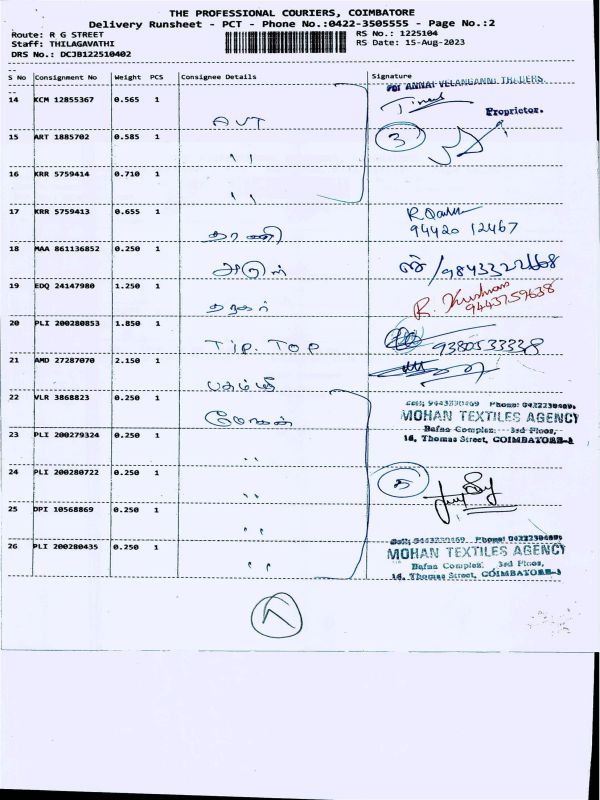 THE PROFESSIONAL COURIERS, COIMBATORE
Delivery Runsheet - PCT - Phone No.:0422-3505555 - Page No.:2
Route: R G STREET
Staff: THILAGAVATHI
DRS No.: DCJB122510402
RS No.: 1225104
RS Date: 15-Aug-2023
S No Consignment No Weight PCS Consignee Details Signature
For ANNAI VELANGANNI TRADERS
14 KCM 12855367 0.565 1 AVT
Proprietor.
15 ART 1885702 0.585 1 '' 3
16 KRR 5759414 0.710 1 ''
17 KRR 5759413 0.655 1 தரணி
94420 12467
18 MAA 861136852 0.250 1 அருள்
19 EDQ 24147980 1.250 1
R. Krishnan
9443759638
20 PLI 200280853 1.850 1 TIP. TOP 9380533338
21 AMD 27287070 2.150 1
22 VLR 3868823 0.250 1 மோகன்
Cell; 9443230469 Phone: 04222304694
MOHAN TEXTILES AGENCY
Bafna Complex 3rd Floor,
16, Thomas Street, COIMBATORE-1
23 PLI 200279324 0.250 1 ''
24 PLI 200280722 0.250 1 '' 5
25 DPI 10568869 0.250 1 ''
26 PLI 200280435 0.250 1 ''
MOHAN TEXTILES AGENCY
Bafna Complex. 3rd Floor,
16, Thomas Street, COIMBATORE-1